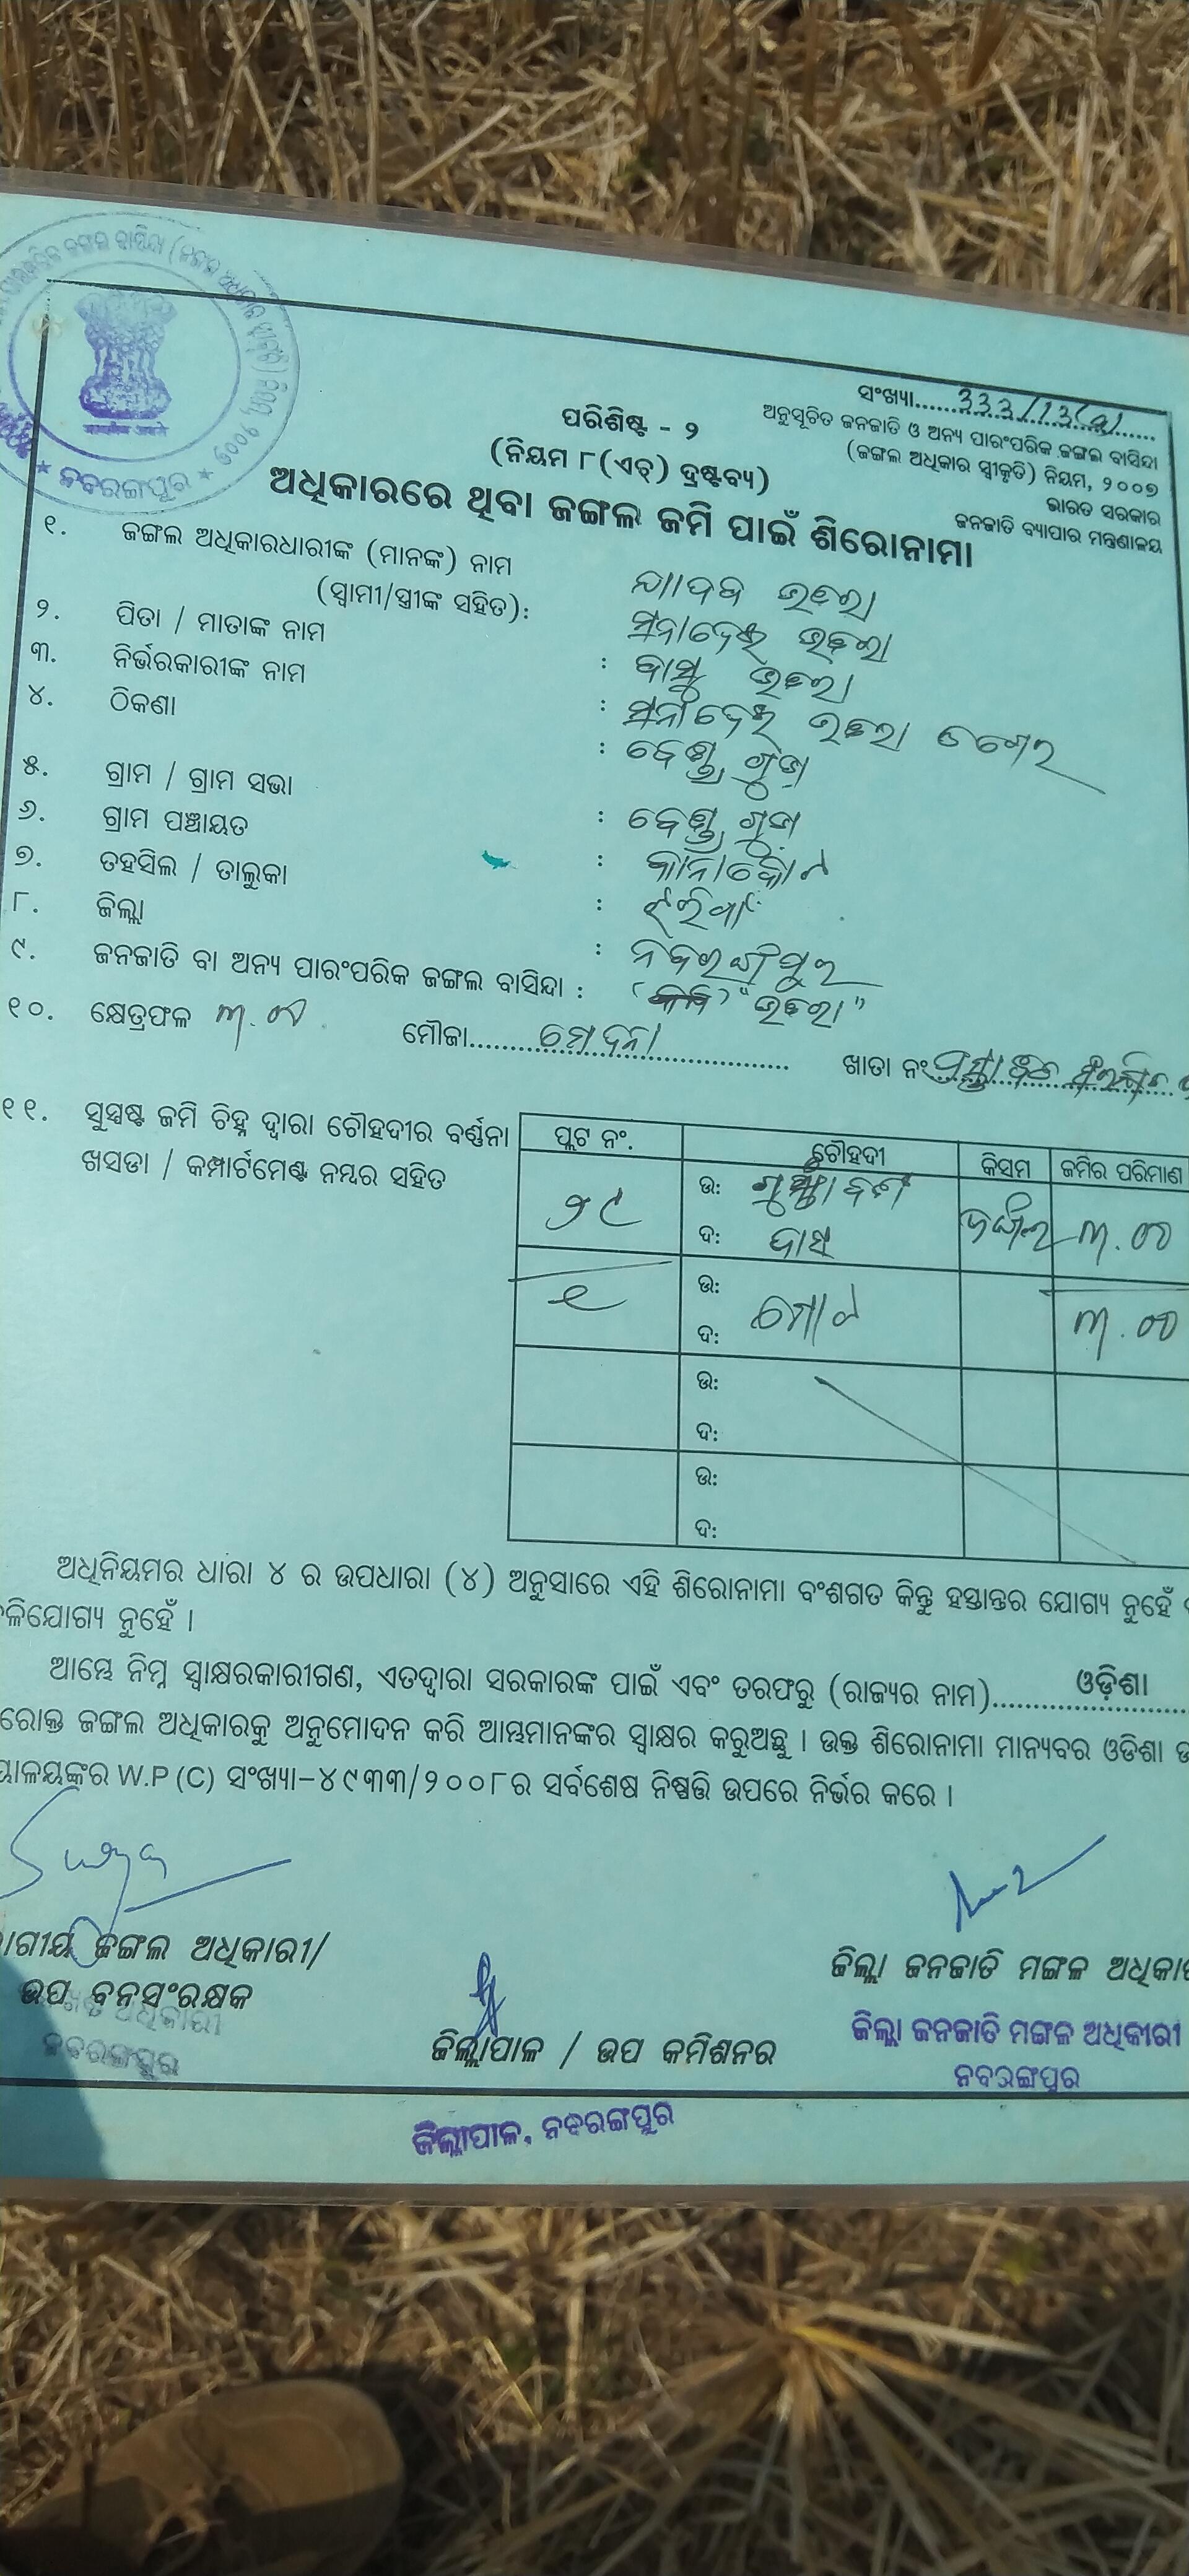 ସଂଖ୍ୟା........333/13(a)
ଅନୁସୂଚିତ ଜନଜାତି ଓ ଅନ୍ୟ ପାରଂପରିକ ଜଙ୍ଗଲ ବାସିନ୍ଦା
(ଜଙ୍ଗଲ ଅଧିକାର ସ୍ୱୀକୃତି) ନିୟମ, ୨୦୦୭
ଭାରତ ସରକାର
ଜନଜାତି ବ୍ୟାପାର ମନ୍ତ୍ରଣାଳୟ
ନବରଙ୍ଗପୁର
ପରିଶିଷ୍ଟ - ୨
(ନିୟମ ୮(ଏଚ୍) ଦ୍ରଷ୍ଟବ୍ୟ)
ଅଧିକାରରେ ଥିବା ଜଙ୍ଗଲ ଜମି ପାଇଁ ଶିରୋନାମା
୧. ଜଙ୍ଗଲ ଅଧିକାରଧାରୀଙ୍କ (ମାନଙ୍କ) ନାମ
(ସ୍ୱାମୀ/ସ୍ତ୍ରୀଙ୍କ ସହିତ):
ଯାଦବ ଭତରା
ମନାଦେଈ ଭତରା
୨. ପିତା / ମାତାଙ୍କ ନାମ : ବାସୁ ଭତରା
୩. ନିର୍ଭରକାରୀଙ୍କ ନାମ : ମନାଦେଈ ଭତରା
୪. ଠିକଣା :
୫. ଗ୍ରାମ / ଗ୍ରାମ ସଭା :
୬. ଗ୍ରାମ ପଞ୍ଚାୟତ :
୭. ତହସିଲ / ତାଲୁକା : ଝରିଗାଁ
୮. ଜିଲ୍ଲା : ନବରଙ୍ଗପୁର
୯. ଜନଜାତି ବା ଅନ୍ୟ ପାରଂପରିକ ଜଙ୍ଗଲ ବାସିନ୍ଦା : "ଭତରା"
୧୦. କ୍ଷେତ୍ରଫଳ ୩.୦୦ ମୌଜା........ ଖାତା ନଂ
୧୧. ସୁସ୍ପଷ୍ଟ ଜମି ଚିହ୍ନ ଦ୍ୱାରା ଚୌହଦୀର ବର୍ଣ୍ଣନା
ଖସଡା / କମ୍ପାର୍ଟମେଣ୍ଟ ନମ୍ବର ସହିତ
ପ୍ଲଟ ନଂ. ଚୌହଦୀ କିସମ ଜମିର ପରିମାଣ
୨୯ ଉ: ଜଙ୍ଗଲ ୩.୦୦
ଦ: ଦାସ
୧ ଉ: ମୋଟ ୩.୦୦
ଦ:
ଉ:
ଦ:
ଉ:
ଦ:
ଅଧିନିୟମର ଧାରା ୪ ର ଉପଧାରା (୪) ଅନୁସାରେ ଏହି ଶିରୋନାମା ବଂଶଗତ କିନ୍ତୁ ହସ୍ତାନ୍ତର ଯୋଗ୍ୟ ନୁହେଁ
ଳିଯୋଗ୍ୟ ନୁହେଁ ।
ଆମ୍ଭେ ନିମ୍ନ ସ୍ୱାକ୍ଷରକାରୀଗଣ, ଏତଦ୍ୱାରା ସରକାରଙ୍କ ପାଇଁ ଏବଂ ତରଫରୁ (ରାଜ୍ୟର ନାମ)........ଓଡ଼ିଶା
ରୋକ୍ତ ଜଙ୍ଗଲ ଅଧିକାରକୁ ଅନୁମୋଦନ କରି ଆମ୍ଭମାନଙ୍କର ସ୍ୱାକ୍ଷର କରୁଅଛୁ । ଉକ୍ତ ଶିରୋନାମା ମାନ୍ୟବର ଓଡିଶା
ୟାଳୟଙ୍କର W.P (C) ସଂଖ୍ୟା-୪୯୩୩/୨୦୦୮ର ସର୍ବଶେଷ ନିଷ୍ପତ୍ତି ଉପରେ ନିର୍ଭର କରେ ।
ାଗୀୟ ଜଙ୍ଗଲ ଅଧିକାରୀ/
ଉପ ବନସଂରକ୍ଷକ
ନବରଙ୍ଗପୁର
ଜିଲ୍ଲାପାଳ / ଉପ କମିଶନର
ଜିଲ୍ଲାପାଳ, ନବରଙ୍ଗପୁର
ଜିଲ୍ଲା ଜନଜାତି ମଙ୍ଗଳ ଅଧିକା
ଜିଲ୍ଲା ଜନଜାତି ମଙ୍ଗଳ ଅଧିକାରୀ
ନବରଙ୍ଗପୁର